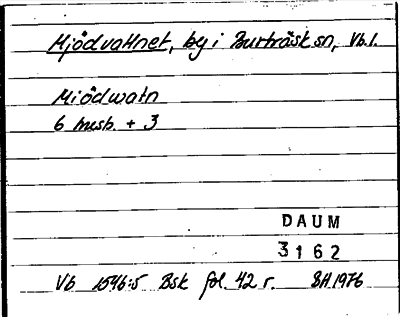 Mjödvattnet, by i Burträsk sn, Vb.l.
Miödwatn
6 husb. + 3
DAUM
3162
Vb 1546:5 Bsk fol. 42 r. SH 1976